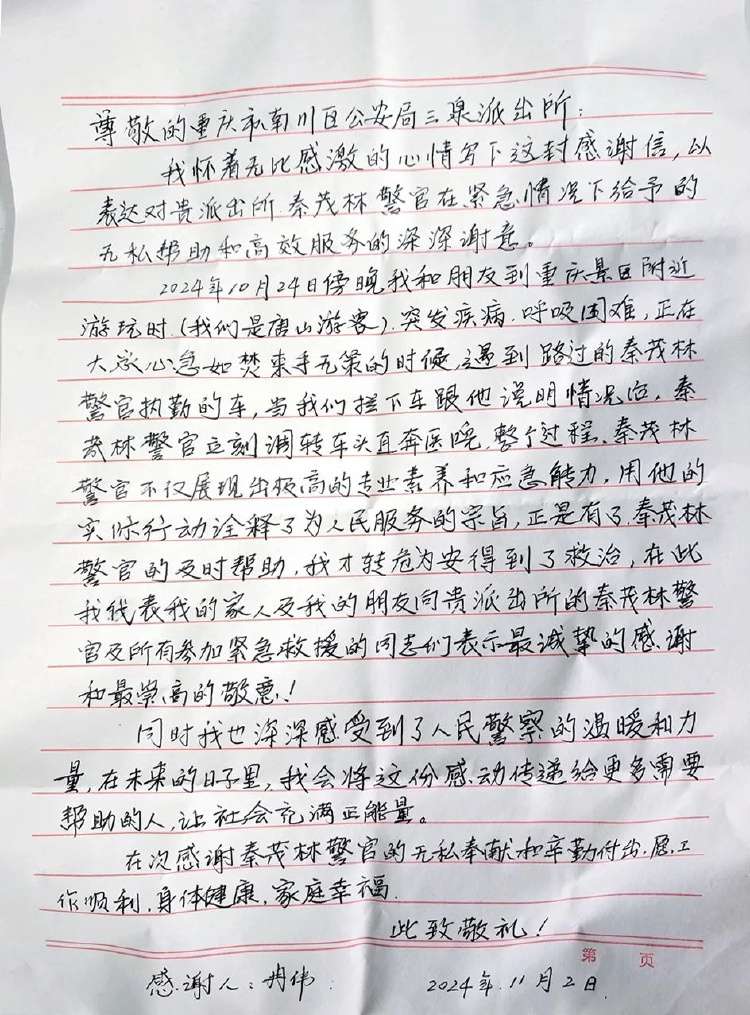 尊敬的重庆市南川区公安局三泉派出所：
我怀着无比感激的心情写下这封感谢信，以
表达对贵派出所秦茂林警官在紧急情况下给予的
无私帮助和高效服务的深深谢意。
2024年10月24日傍晚我和朋友到重庆景区附近
游玩时（我们是唐山游客）.突发疾病.呼吸困难，正在
大家心急如焚束手无策的时候，遇到路过的秦茂林
警官执勤的车，当我们拦下车跟他说明情况后，秦
茂林警官立刻调转车头直奔医院，整个过程、秦茂林
警官不仅展现出极高的专业素养和应急能力，用他的
实际行动诠释了为人民服务的宗旨，正是有了秦茂林
警官的及时帮助，我才转危为安得到了救治，在此
我代表我的家人及我的朋友向贵派出所的秦茂林警
官及所有参加紧急救援的同志们表示最诚挚的感谢
和最崇高的敬意！
同时我也深深感受到了人民警察的温暖和力
量，在未来的日子里，我会将这份感动传递给更多需要
帮助的人，让社会充满正能量。
在次感谢秦茂林警官的无私奉献和辛勤付出.愿工
作顺利.身体健康.家庭幸福.
此致敬礼！
第 页
感谢人：冉伟 2024年.11月2日.